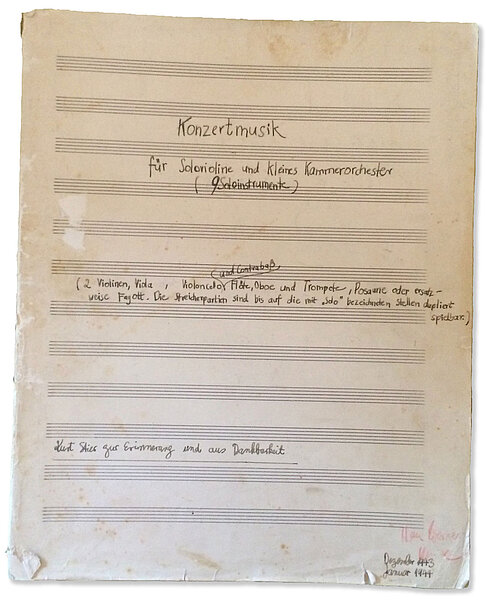 Konzertmusik
für Solovioline und kleines Kammerorchester
( 9 Soloinstrumente )
(und Contrabaß)
( 2 Violinen, Viola , Violoncello, Flöte, Oboe und Trompete, Posaune oder ersatz-
weise Fagott. Die Streicherpartien sind bis auf die mit „solo" bezeichneten Stellen dupliert
spielbar.)
Kurt Stier zur Erinnerung und aus Dankbarkeit
Dezember 1943
Januar 1944